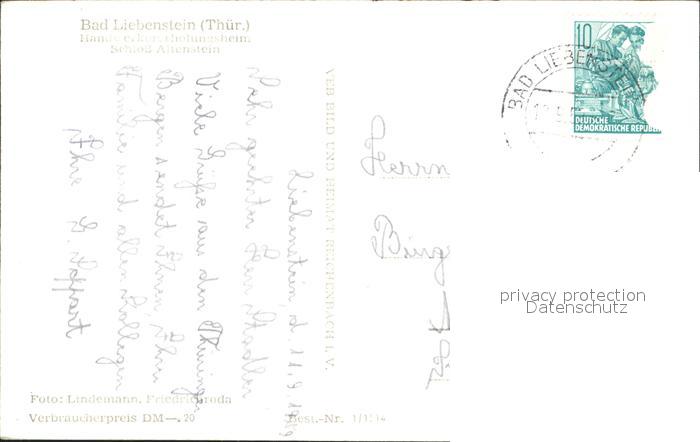 Bad Liebenstein (Thür.)
Handwerkererholungsheim
Schloß Altenstein
Liebenstein, d. 11.9.
Sehr geehrter Herr Stadler
Viele Grüße aus den Thüringer
Bergen sendet Ihnen, Ihrer
Familie und allen Kollegen
Ihre
VEB BILD UND HEIMAT REICHENBACH I. V.
Herrn
Bürg
10
DEUTSCHE
DEMOKRATISCHE REPUBLIK
BAD LIEBENSTEIN
privacy protection
Datenschutz
Foto: Lindemann, Friedrichroda
Verbraucherpreis DM —.20
Best.-Nr.